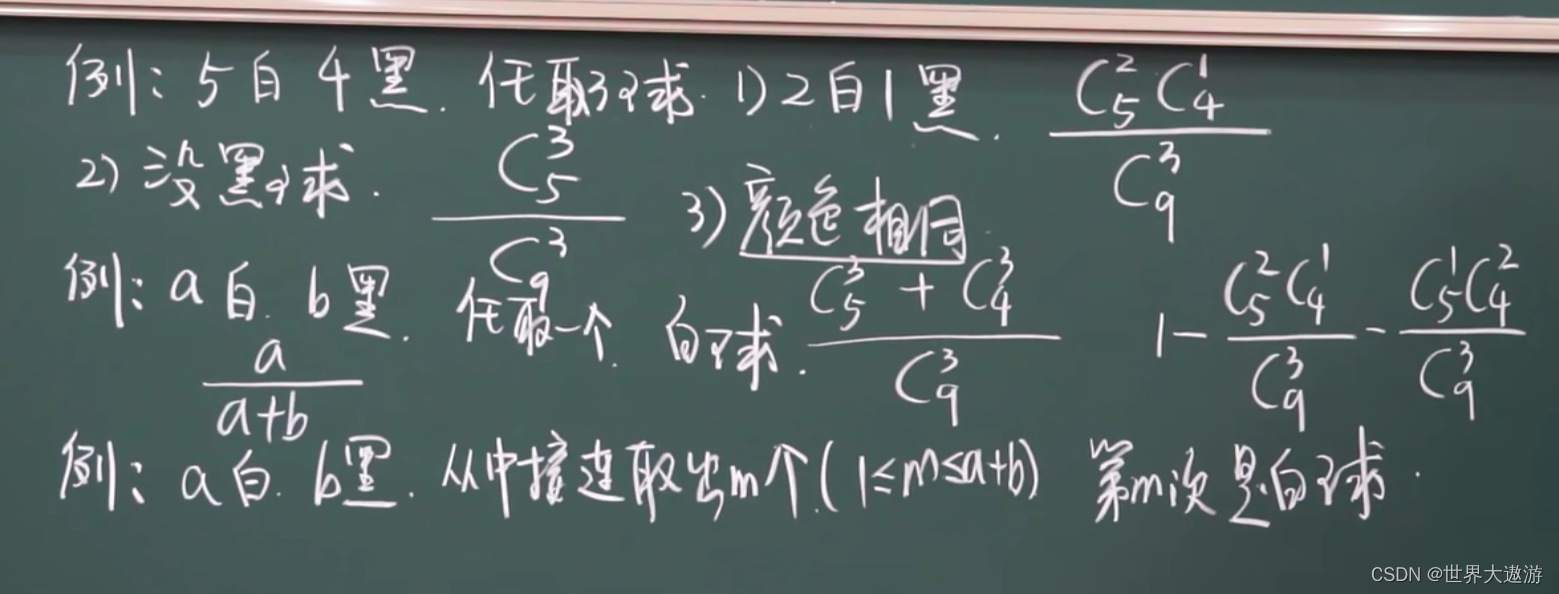 例：5白4黑. 任取3球. 1) 2白1黑. C₅²C₄¹/C₉³
2) 没黑球. C₅³/C₉³ 3) 颜色相同. (C₅³ + C₄³)/C₉³ 1 - C₅²C₄¹/C₉³ - C₅¹C₄²/C₉³
例：a白. b黑. 任取一个. 白球. a/(a+b)
例：a白. b黑. 从中接连取出m个. (1≤m≤a+b) 第m次是白球.
CSDN @世界大遨游